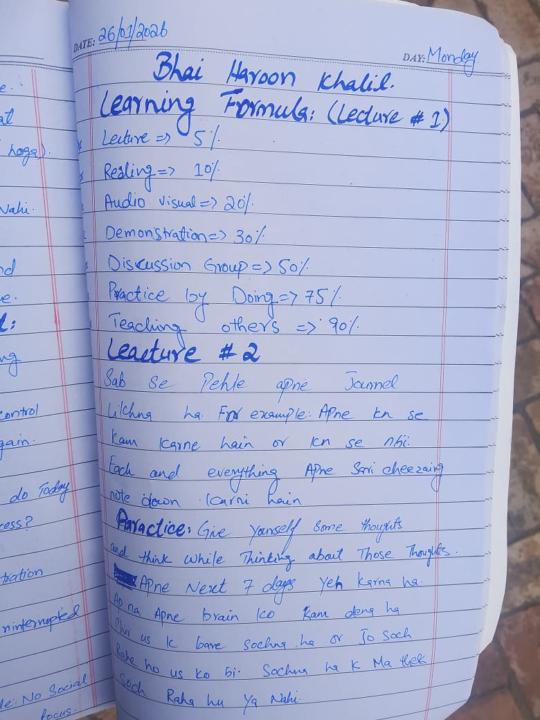 e.
al
hoga).
Nahi.
nd
e.
l:
ng
control
gain.
do Today
cess?
tration
ninterrupted
le: No Social
Focus.
DATE: 26/01/2026
DAY: Monday
Bhai Haroon Khalil.
Learning Formula: (Lecture # 1)
Lecture => 5%
Reading => 10%
Audio visual => 20%
Demonstration => 30%
Discussion Group => 50%
Practice by Doing => 75%
Teaching others => 90%
Leacture # 2
Sab se Pehle apne Jounel
Likhna ha. For example: Apne kn se
Kam Karne hain or kn se nhi.
Each and everything Apne Sari cheezaing
note down Karni hain
Paractice: Give Yourself Some thoughts
and think while Thinking about Those Thoughts.
Apne Next 7 days Yeh Karna ha.
Ap na Apne brain ko Kam dena ha
Phir us k bare sochna ha or Jo Soch
Rahe ho us ko bi Sochna ha k Ma thek
Soch Raha hu Ya Nahi.